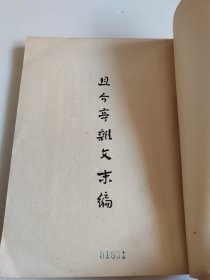 且介亭雜文末編
01601